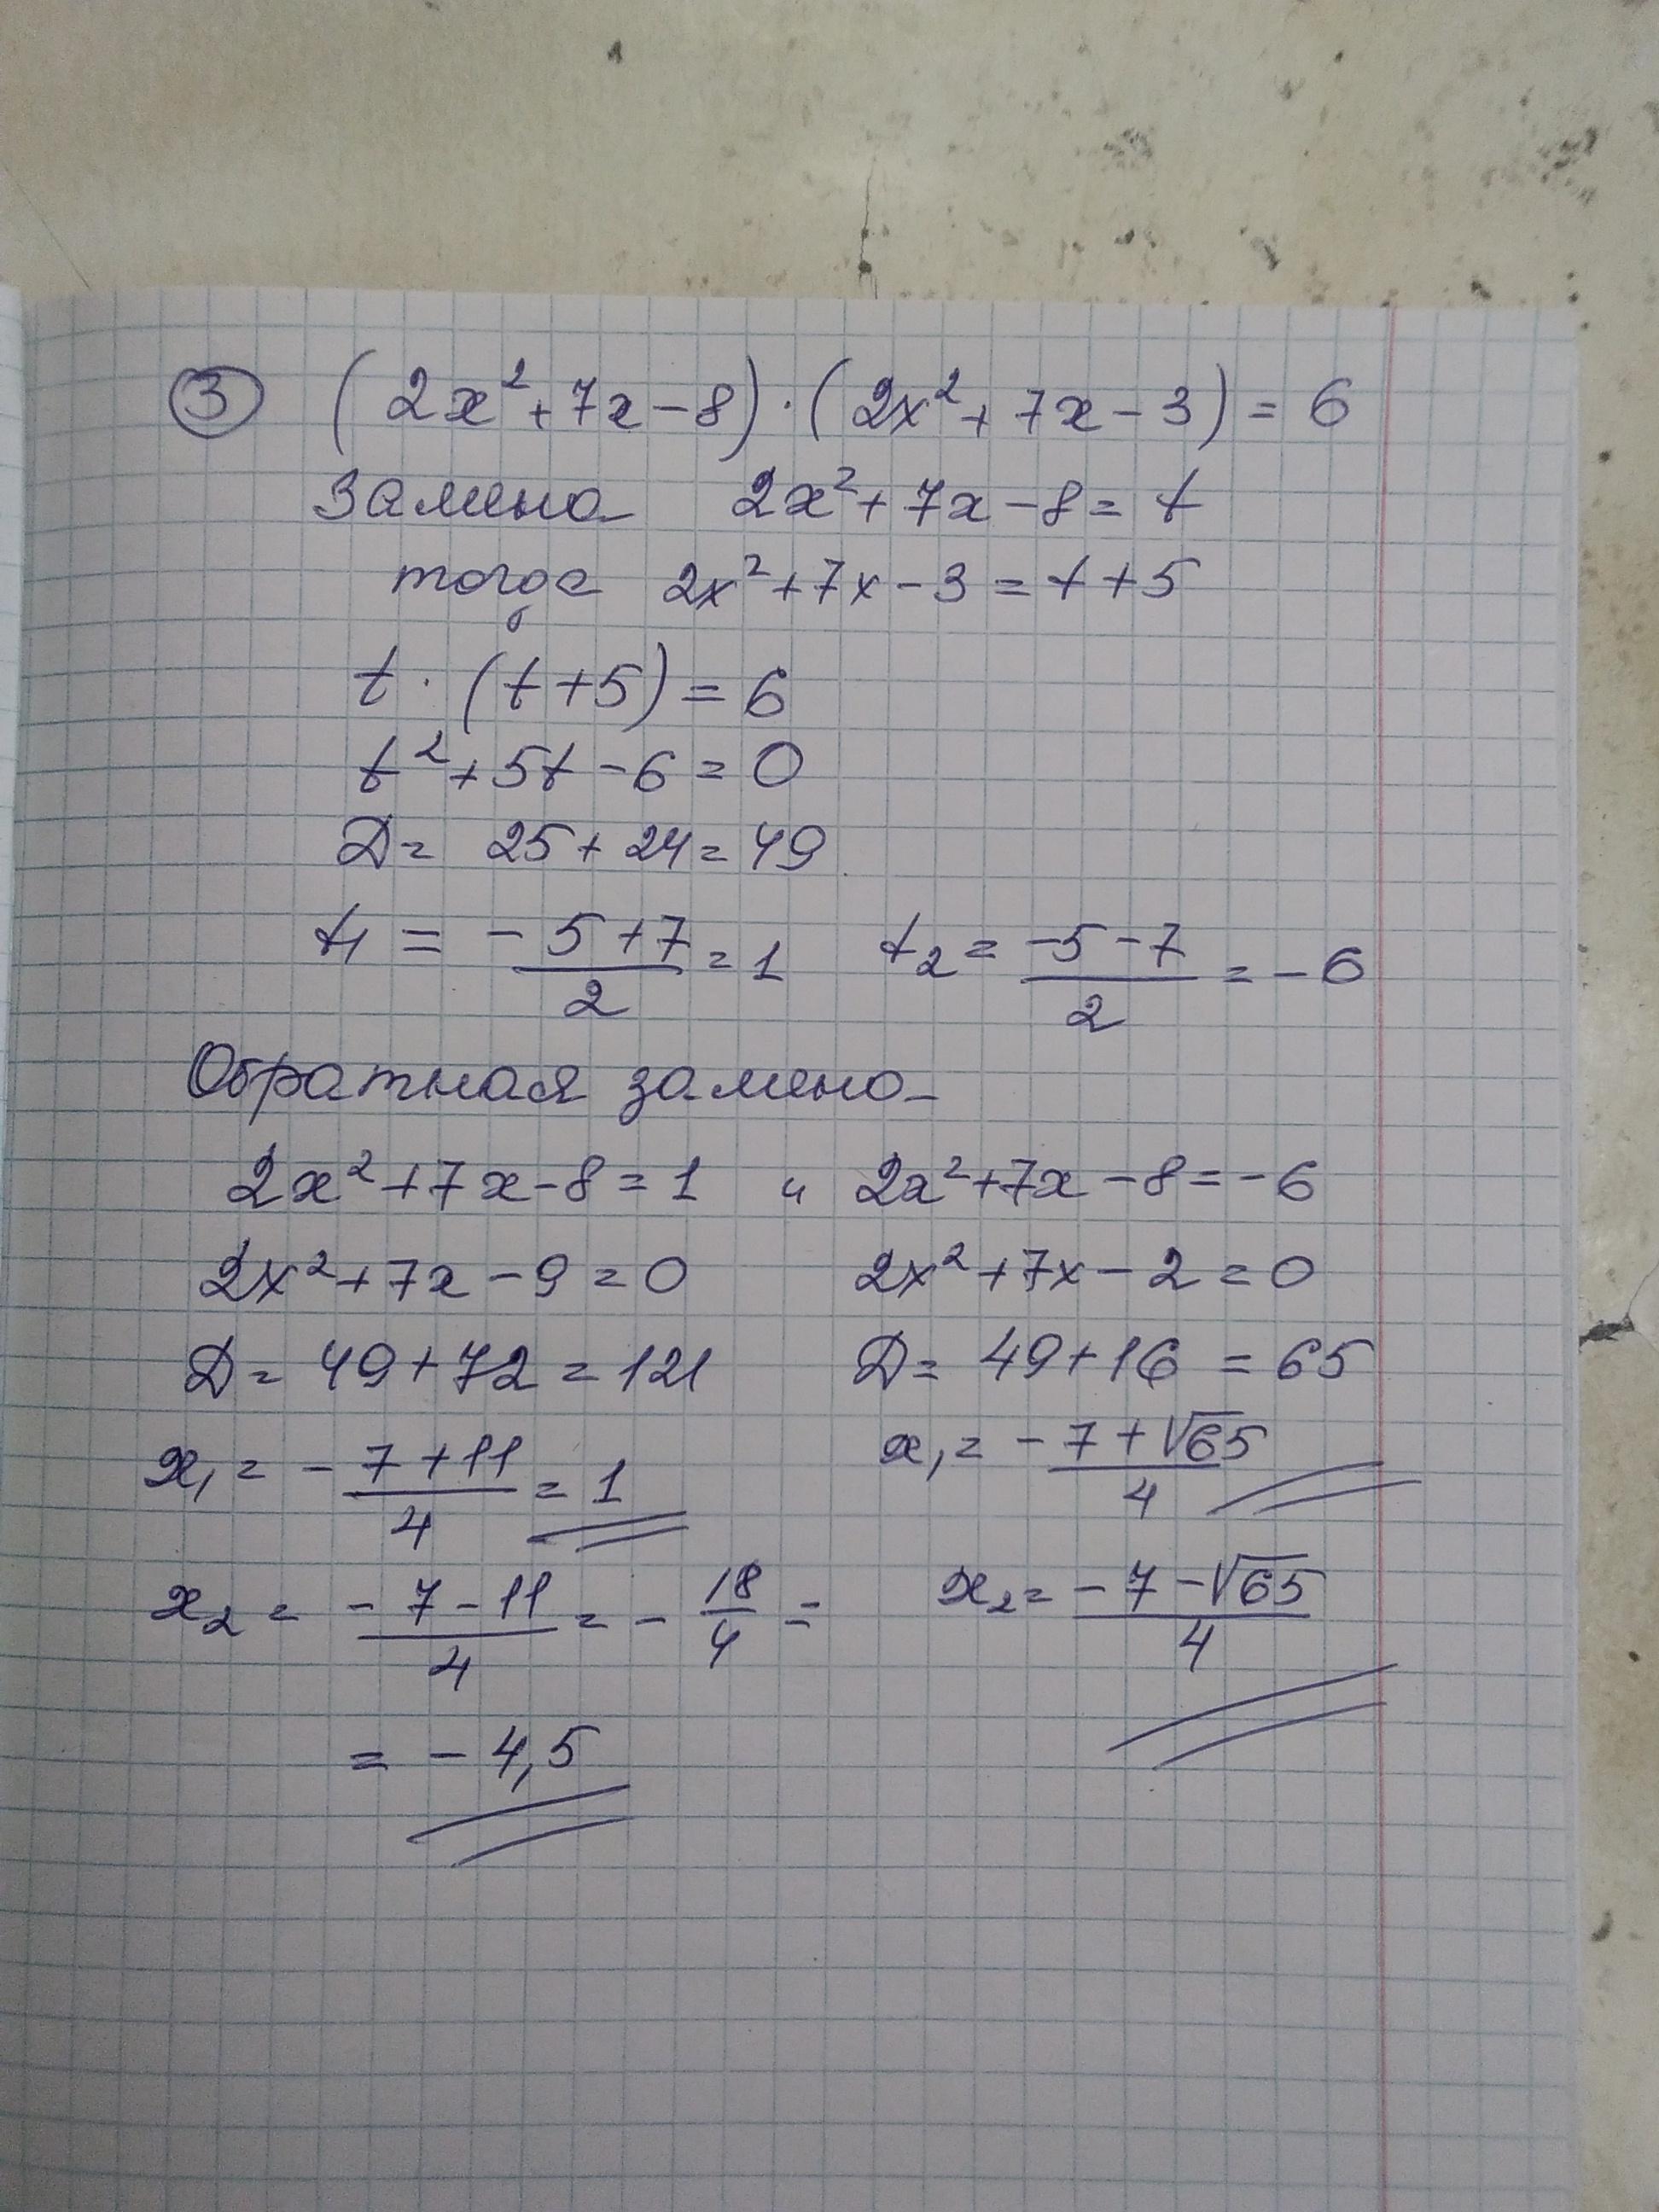 ③ (2x²+7x-8)·(2x²+7x-3)=6
Замена 2x²+7x-8=t
тогда 2x²+7x-3=t+5
t·(t+5)=6
t²+5t-6=0
D=25+24=49
t₁=(-5+7)/2=1 t₂=(-5-7)/2=-6
Обратная замена
2x²+7x-8=1 и 2x²+7x-8=-6
2x²+7x-9=0 2x²+7x-2=0
D=49+72=121 D=49+16=65
x₁=(-7+11)/4=1 x₁=(-7+√65)/4
x₂=(-7-11)/4=-18/4= x₂=(-7-√65)/4
=-4,5